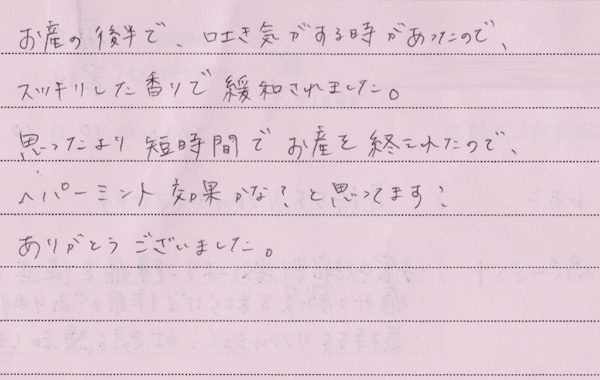 お産の後半で、吐き気がする時があったので、
スッキリした香りで緩和されました。
思ったより短時間でお産を終えれたので、
ペパーミント効果かな?と思ってます!
ありがとうございました。